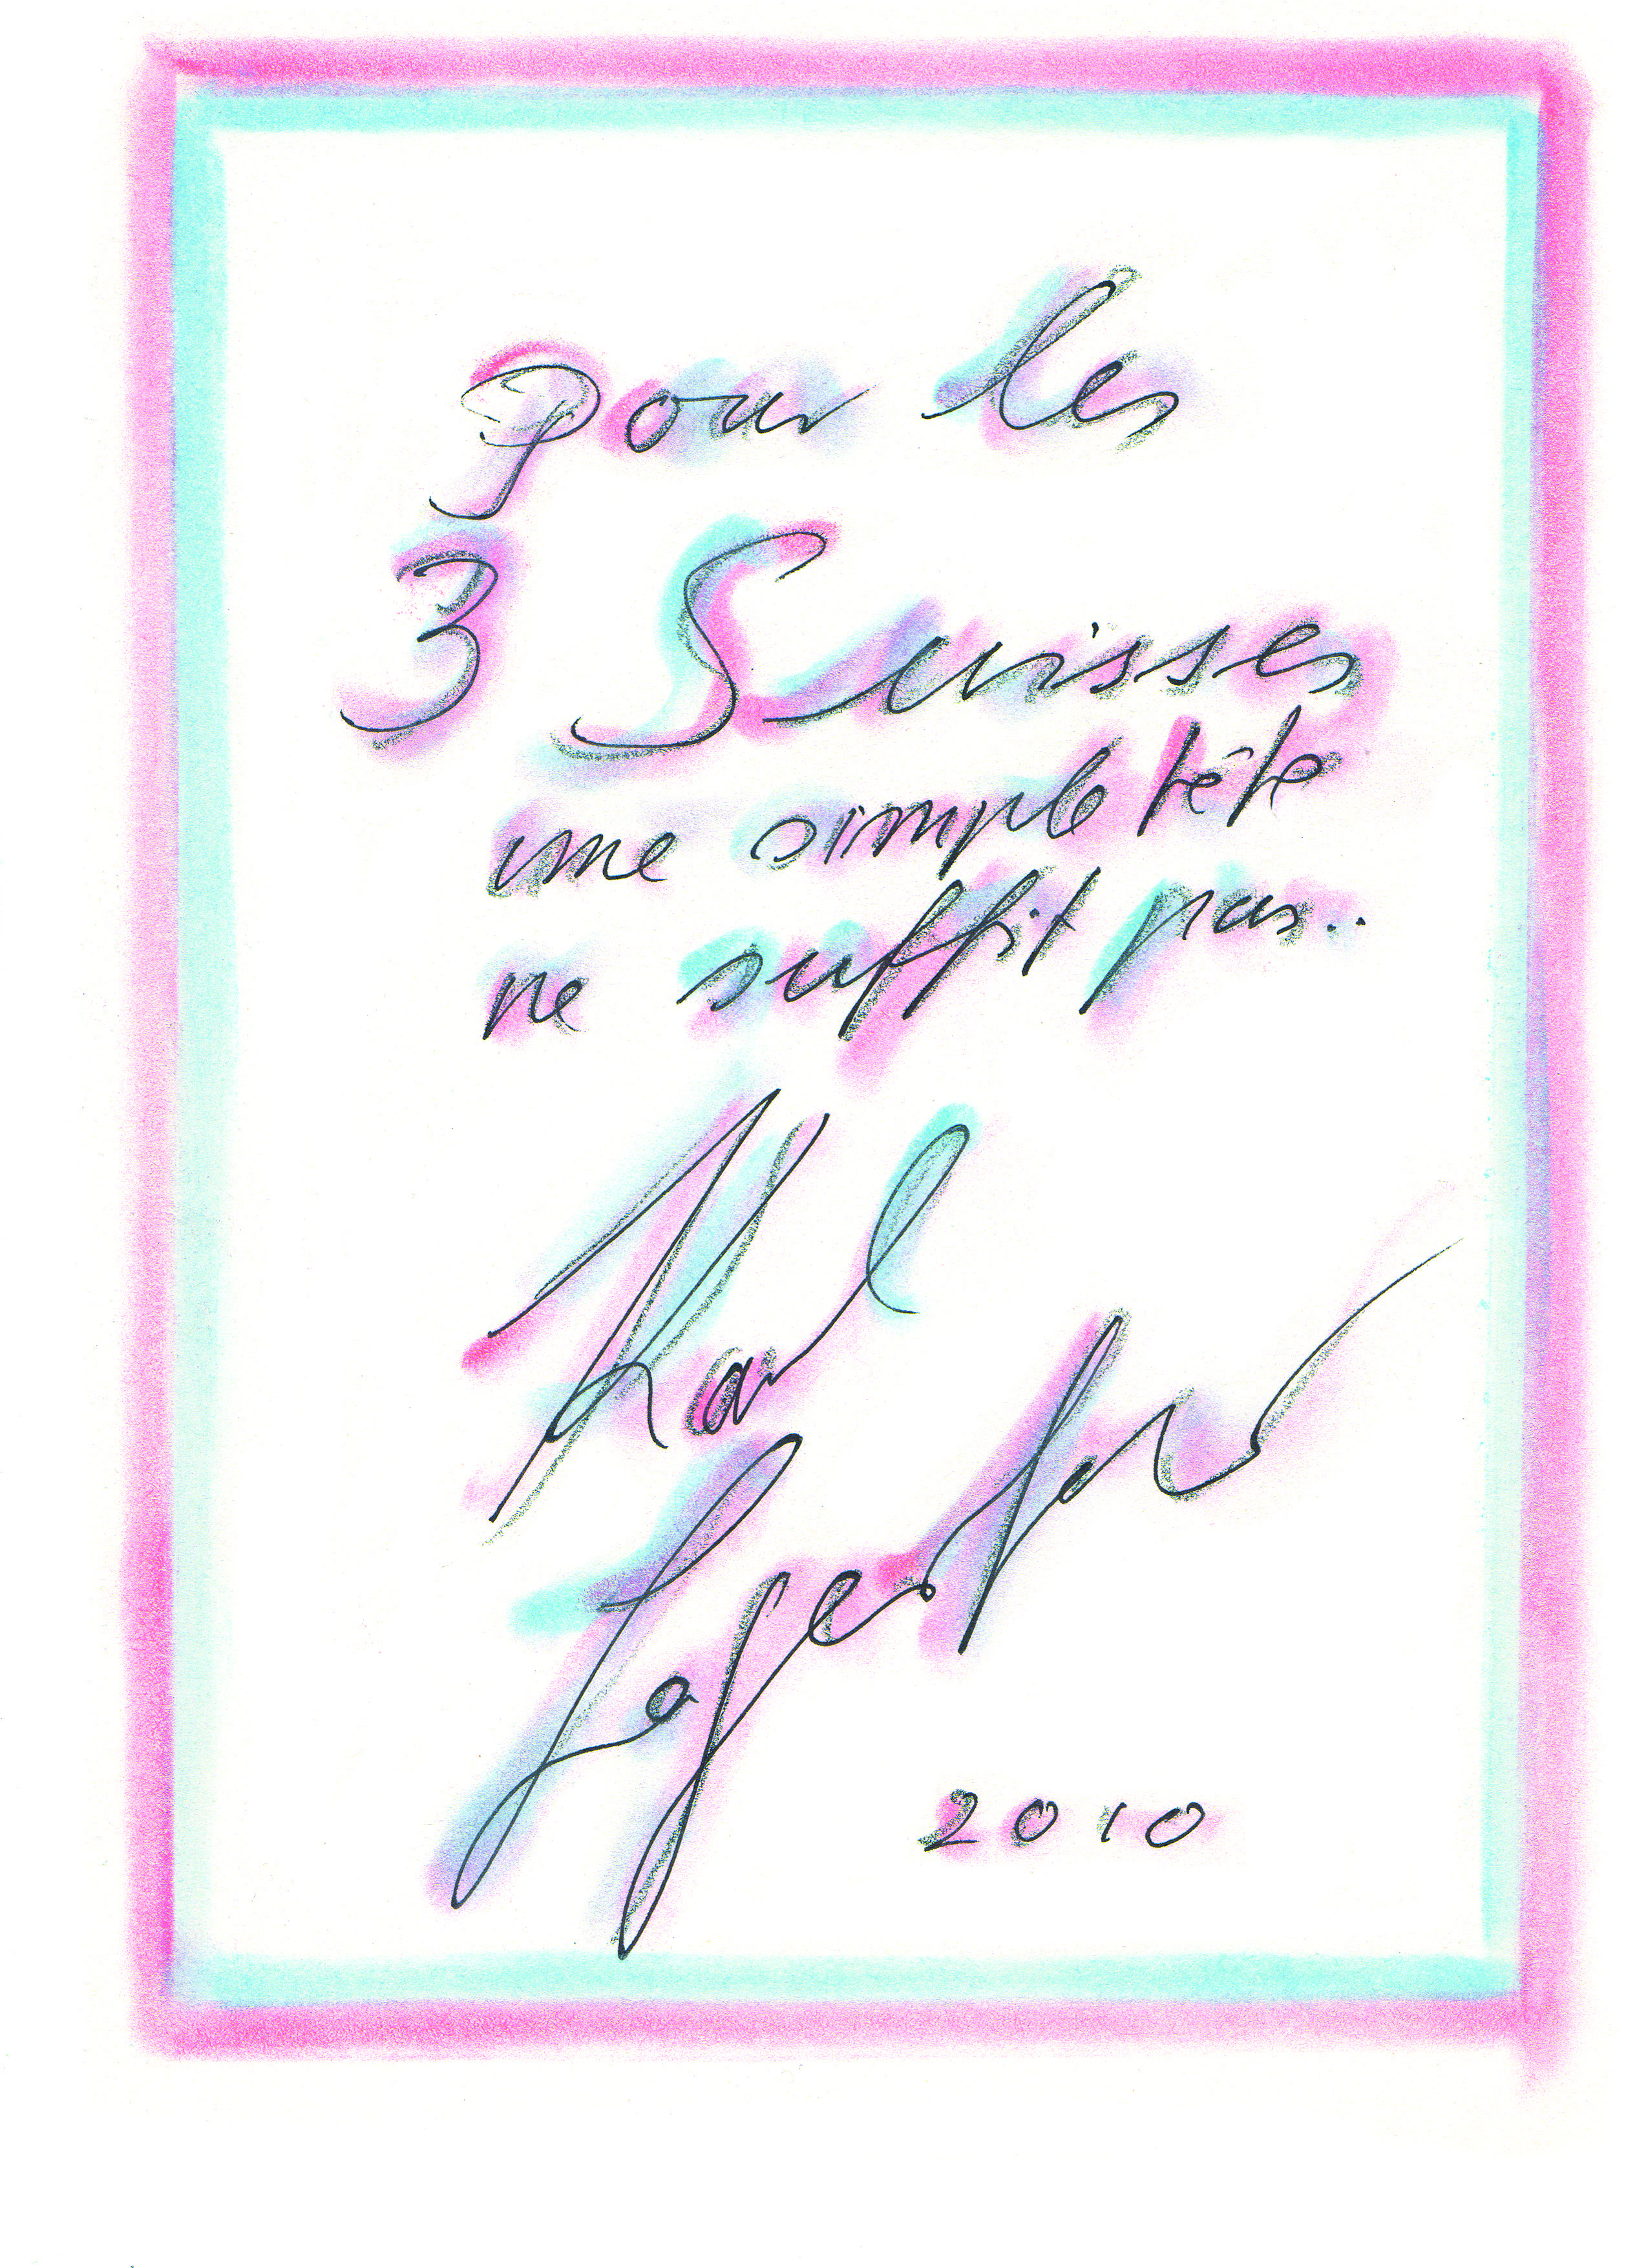 pour les
3 Suisses
une simple tête
ne suffit pas..
Karl
Lagerfeld
2010